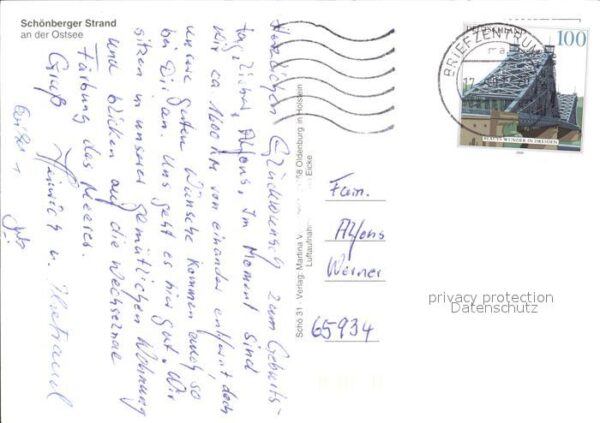 Schönberger Strand
an der Ostsee
Herzlichen Glückwunsch zum Geburts-
tag, lieber Alfons. Im Moment sind
wir ca 1600 km voneinander entfernt, doch
unsere guten Wünsche kommen auch so
bei Dir an. Uns geht es hier gut. Wir
sitzen in unserer gemütlichen Wohnung
und blicken auf die wechselnde
Färbung des Meeres.
Gruß Heinrich u.
Schö 31 Verlag: Martina V 58 Oldenburg in Holstein
Luftaufnahm Eicke
BRIEFZENTRUM
100
BLAUES WUNDER IN DRESDEN
Fam.
Alfons
Werner
65934
privacy protection
Datenschutz